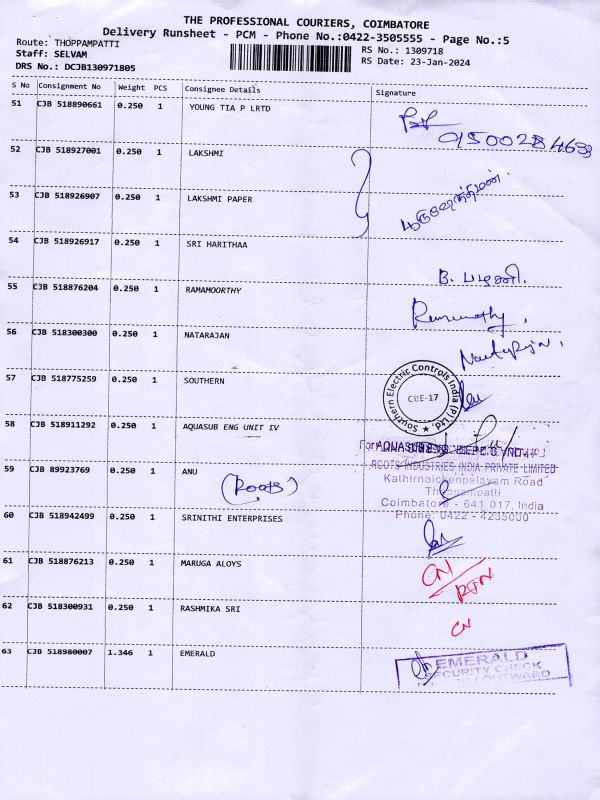 THE PROFESSIONAL COURIERS, COIMBATORE
Delivery Runsheet - PCM - Phone No.:0422-3505555 - Page No.:5
Route: THOPPAMPATTI
Staff: SELVAM
DRS No.: DCJB130971805
RS No.: 1309718
RS Date: 23-Jan-2024
S No Consignment No Weight PCS Consignee Details Signature
51 CJB 518890661 0.250 1 YOUNG TIA P LRTD
52 CJB 518927001 0.250 1 LAKSHMI
53 CJB 518926907 0.250 1 LAKSHMI PAPER
54 CJB 518926917 0.250 1 SRI HARITHAA
B. பழனி.
55 CJB 518876204 0.250 1 RAMAMOORTHY
56 CJB 518300300 0.250 1 NATARAJAN
57 CJB 518775259 0.250 1 SOUTHERN
Southern Electric Controls India (P) Ltd.
CBE-17
58 CJB 518911292 0.250 1 AQUASUB ENG UNIT IV
For AQUASUB ENG.
ROOTS INDUSTRIES INDIA PRIVATE LIMITED
59 CJB 89923769 0.250 1 ANU
(ROOTS)
Kathirnaickenpalayam Road
Thoppampatti
Coimbatore - 641 017, India
Phone: 0422 - 4235000
60 CJB 518942499 0.250 1 SRINITHI ENTERPRISES
61 CJB 518876213 0.250 1 MARUGA ALOYS
CN
RTN
62 CJB 518300931 0.250 1 RASHMIKA SRI
CN
63 CJB 518980007 1.346 1 EMERALD
EMERALD
SECURITY CHECK
OUTWARD